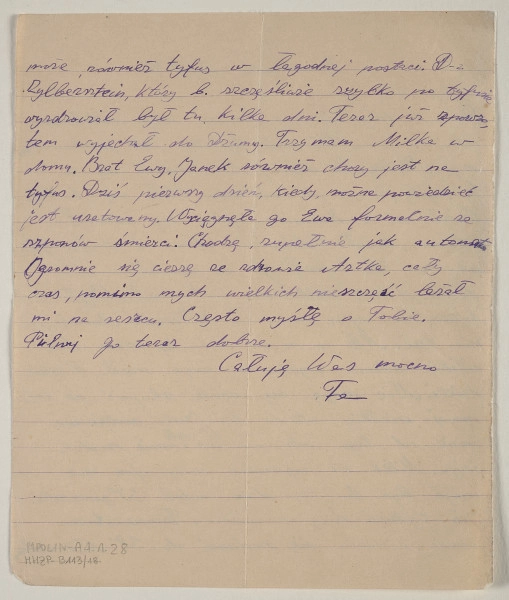 może, również tyfus w łagodnej postaci. Dr
Zylberstein, który b. szczęśliwie szybko po tyfusie
wyzdrowiał był tu kilka dni. Teraz już z powro-
tem wyjechał do Trzymam Milka w
domu. Brat Ewy, Janek również chory jest na
tyfus. Dziś pierwszy dzień, kiedy można powiedzieć
jest uratowany. Wyciągnęła go Ewa formalnie ze
szponów śmierci. Chodzę, zupełnie jak automat
Ogromnie się cieszę ze zdrowia Artka, cały
czas, pomimo mych wielkich nieszczęść leżał
mi na sercu. Często myślę o Tobie.
Pilnuj go teraz dobrze.
Całuję Was mocno
Fe
MPOLIN-A4.1.28
MHŻP-B113/18